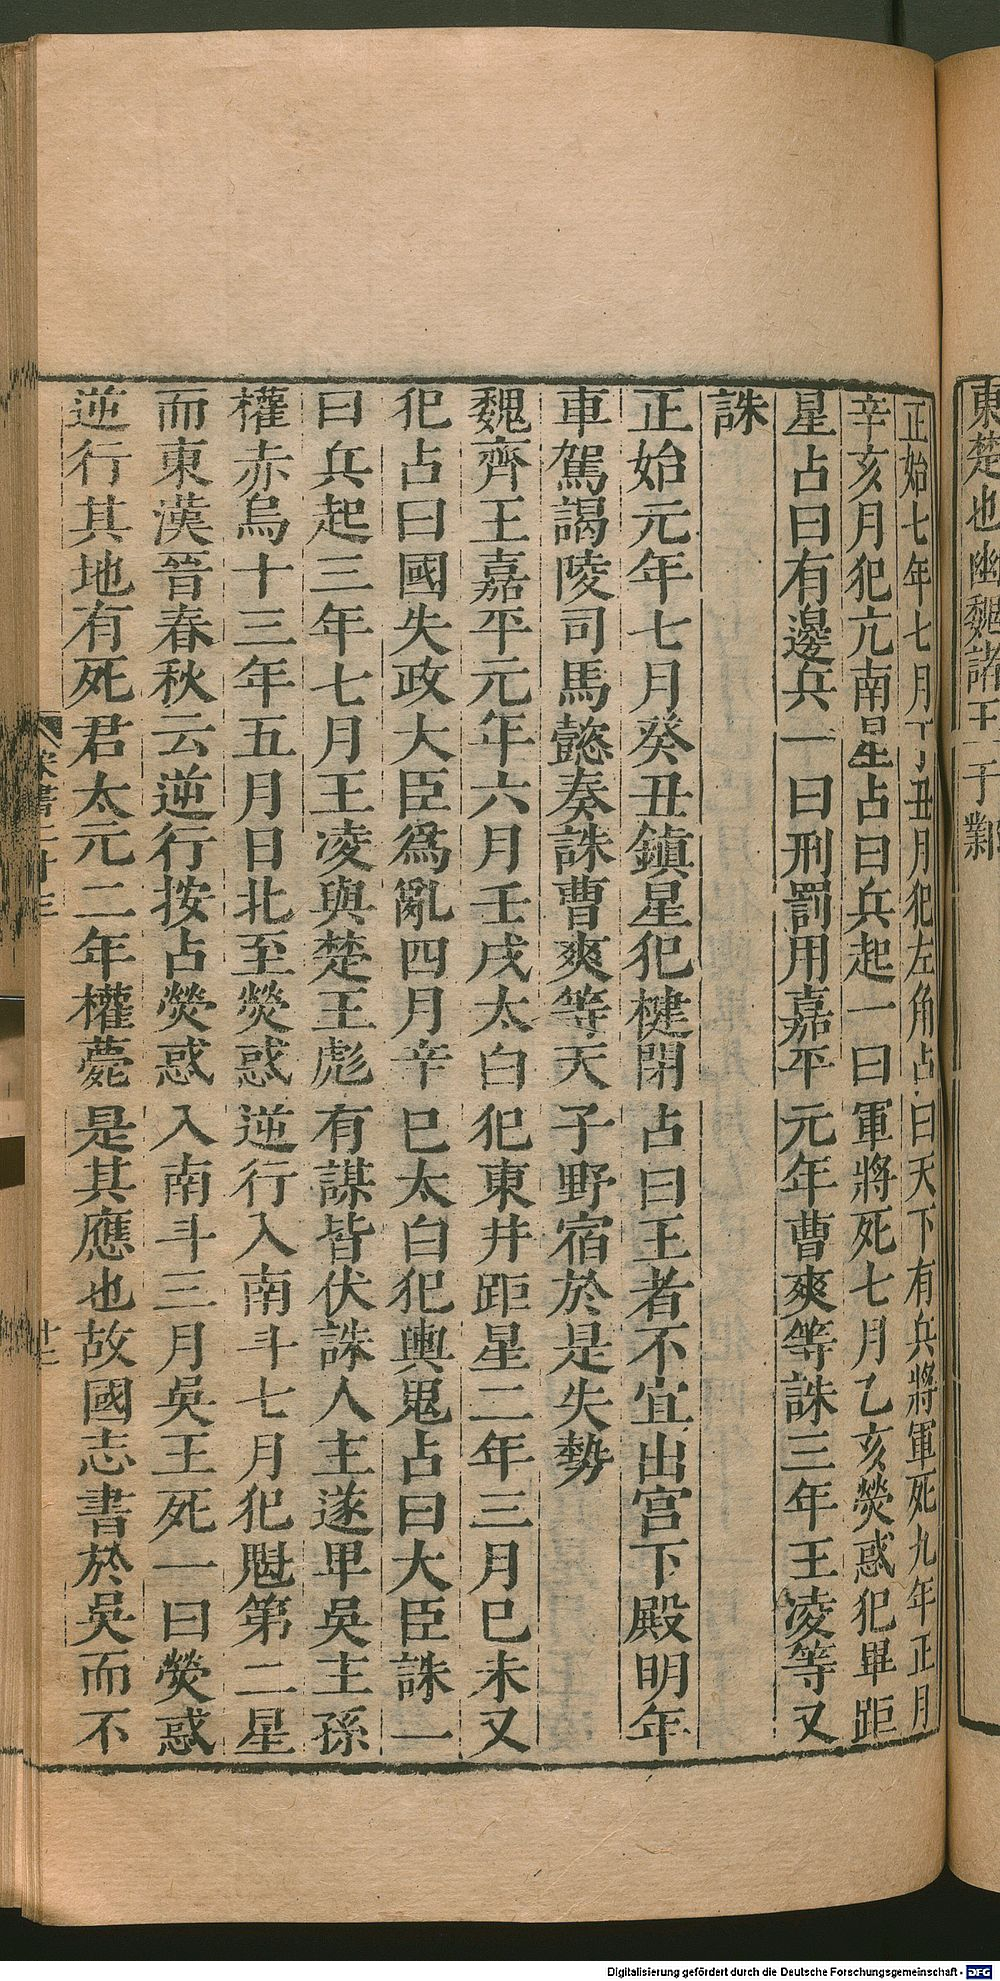 東楚也幽魏諸王
正始七年七月丁丑月犯左角占曰天下有兵將軍死九年正月
辛亥月犯亢南星占曰兵起一曰軍將死七月乙亥熒惑犯畢距
星占曰有邊兵一曰刑罰用嘉平元年曹爽等誅三年王凌等又
誅
正始元年七月癸丑鎮星犯楗閉占曰王者不宜出宮下殿明年
車駕謁陵司馬懿奏誅曹爽等天子野宿於是失勢
魏齊王嘉平元年六月壬戌太白犯東井距星二年三月巳未又
犯占曰國失政大臣爲亂四月辛巳太白犯輿鬼占曰大臣誅一
曰兵起三年七月王凌與楚王彪有謀皆伏誅人主遂卑吳主孫
權赤烏十三年五月日北至熒惑逆行入南斗七月犯魁第二星
而東漢晉春秋云逆行按占熒惑入南斗三月吳王死一曰熒惑
逆行其地有死君太元二年權薨是其應也故國志書於吳而不
Digitalisierung gefördert durch die Deutsche Forschungsgemeinschaft - DFG